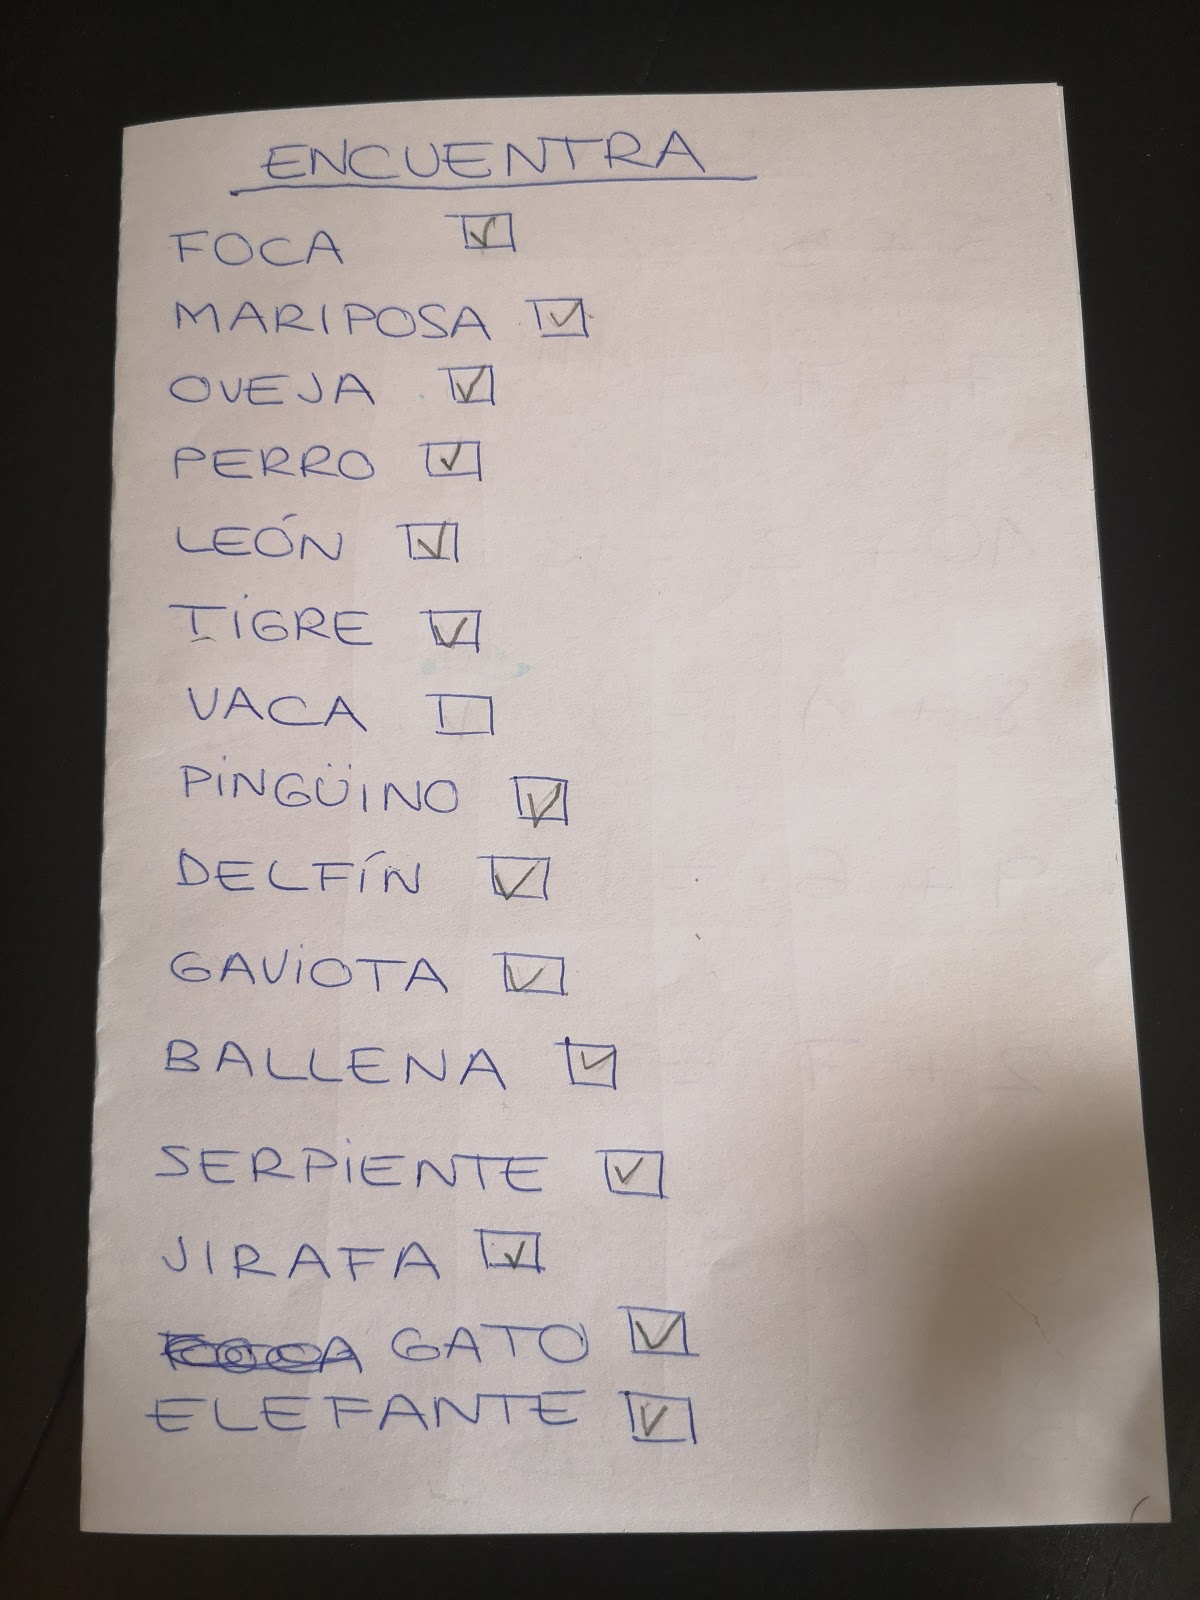 ENCUENTRA
FOCA
MARIPOSA
OVEJA
PERRO
LEÓN
TIGRE
VACA
PINGÜINO
DELFÍN
GAVIOTA
BALLENA
SERPIENTE
JIRAFA
FOCA GATO
ELEFANTE